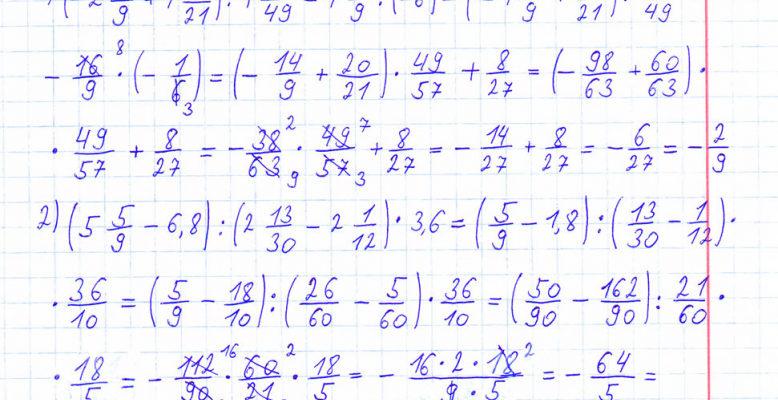 - 16/9 · (- 1/6) = (- 14/9 + 20/21) · 49/57 + 8/27 = (- 98/63 + 60/63) ·
· 49/57 + 8/27 = - 38/63 · 49/57 + 8/27 = - 14/27 + 8/27 = - 6/27 = - 2/9
2) (5 5/9 - 6,8) : (2 13/30 - 2 1/12) · 3,6 = (5/9 - 1,8) : (13/30 - 1/12) ·
· 36/10 = (5/9 - 18/10) : (26/60 - 5/60) · 36/10 = (50/90 - 162/90) : 21/60 ·
· 18/5 = - 112/90 · 60/21 · 18/5 = - 16 · 2 · 18/9 · 5 = - 64/5 =